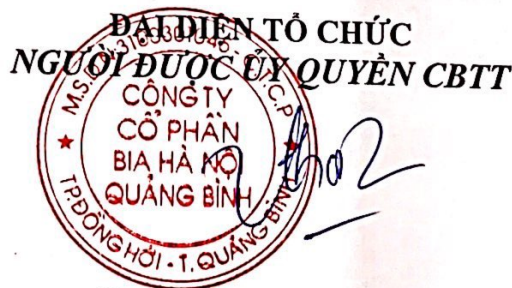 ĐẠI DIỆN TỔ CHỨC
NGƯỜI ĐƯỢC ỦY QUYỀN CBTT
CÔNG TY
CỔ PHẦN
BIA HÀ NỘI
QUẢNG BÌNH
TP.ĐỒNG HỚI - T. QUẢNG BÌNH